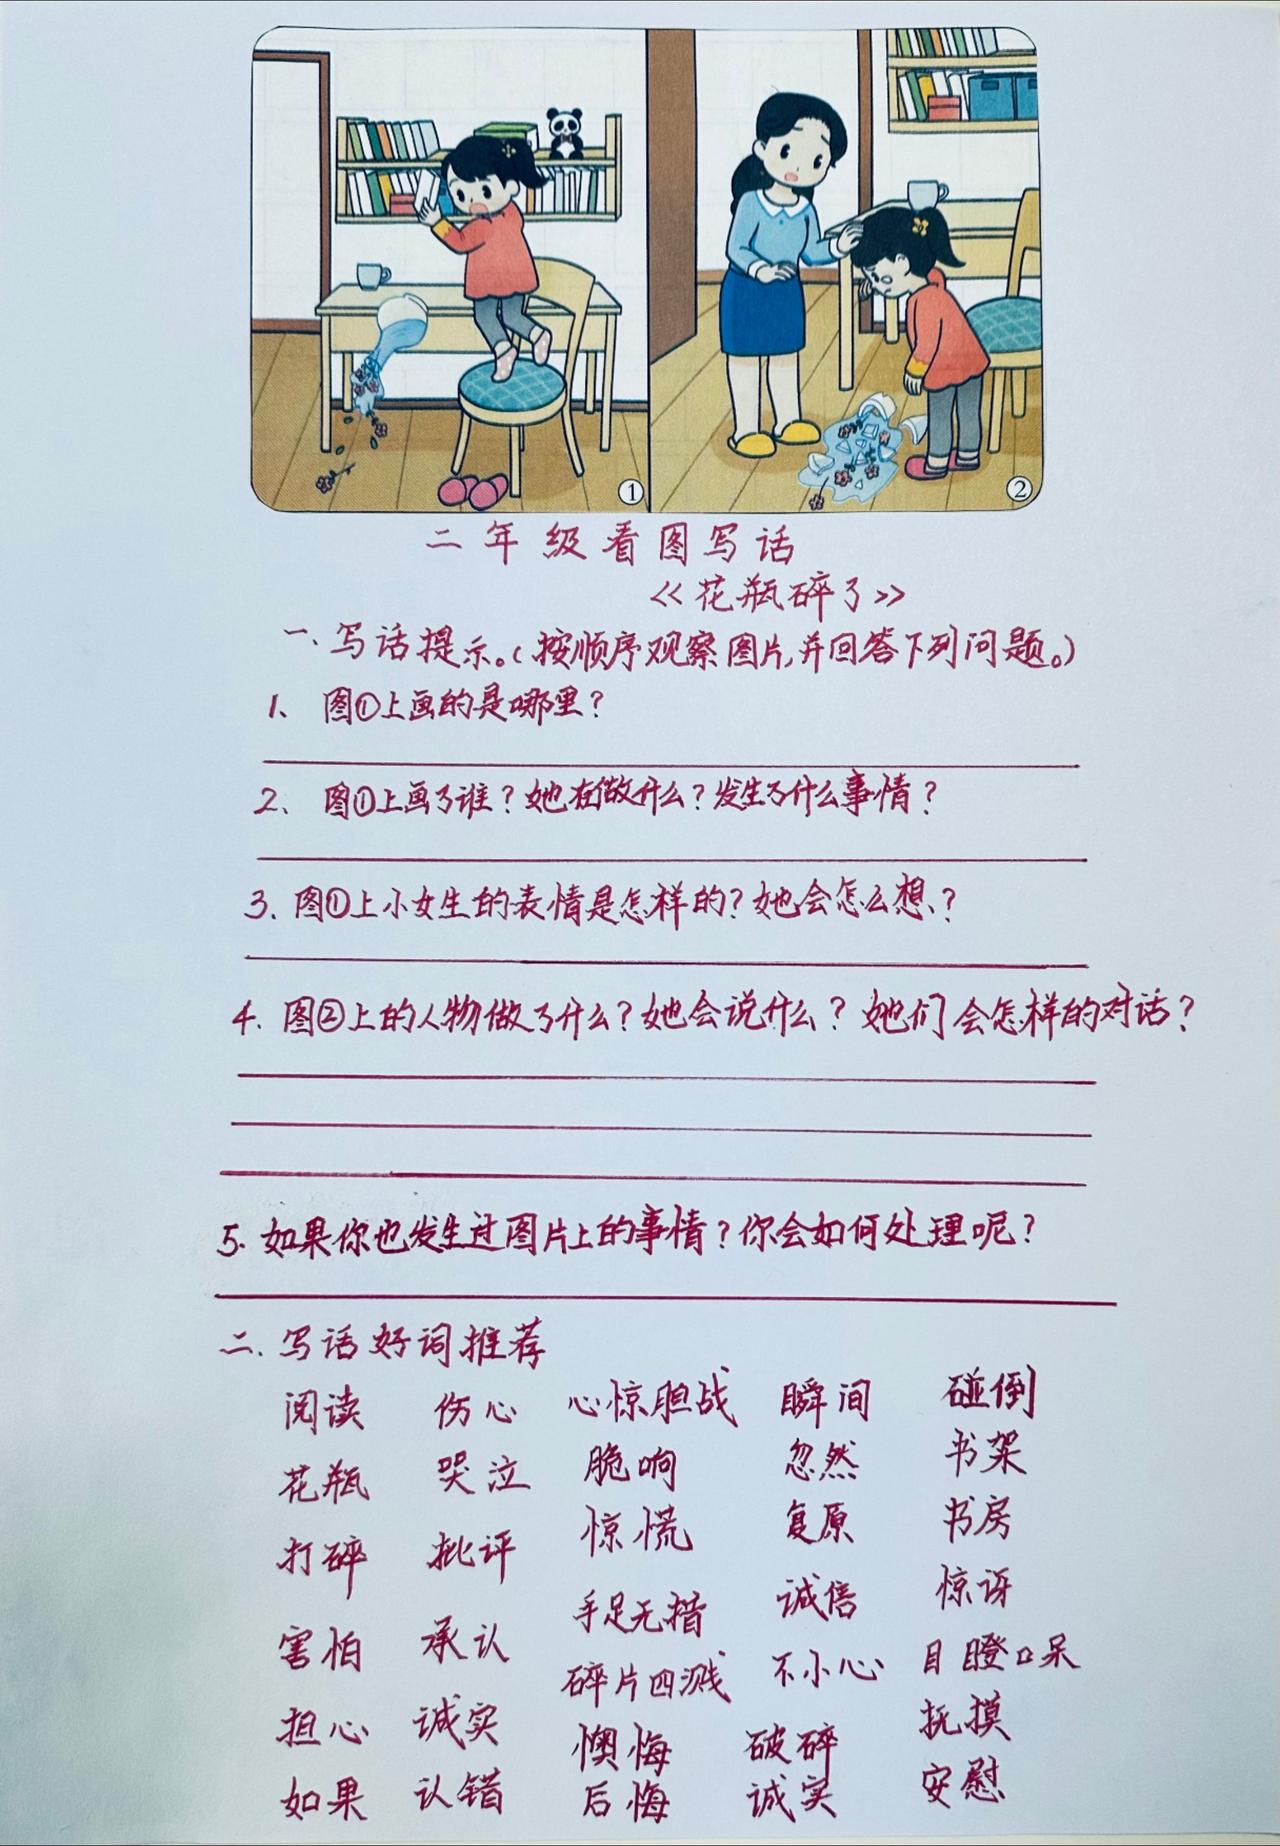 ① ②
二年级看图写话
《花瓶碎了》
一、写话提示。(按顺序观察图片,并回答下列问题。)
1、图①上画的是哪里?
2、图①上画了谁?她在做什么?发生了什么事情?
3、图①上小女生的表情是怎样的?她会怎么想?
4、图②上的人物做了什么?她会说什么?她们会怎样的对话?
5、如果你也发生过图片上的事情?你会如何处理呢?
二、写话好词推荐
阅读 伤心 心惊胆战 瞬间 碰倒
花瓶 哭泣 脆响 忽然 书架
打碎 批评 惊慌 复原 书房
害怕 承认 手足无措 诚信 惊讶
担心 诚实 碎片四溅 不小心 目瞪口呆
如果 认错 懊悔 破碎 抚摸
后悔 诚实 安慰